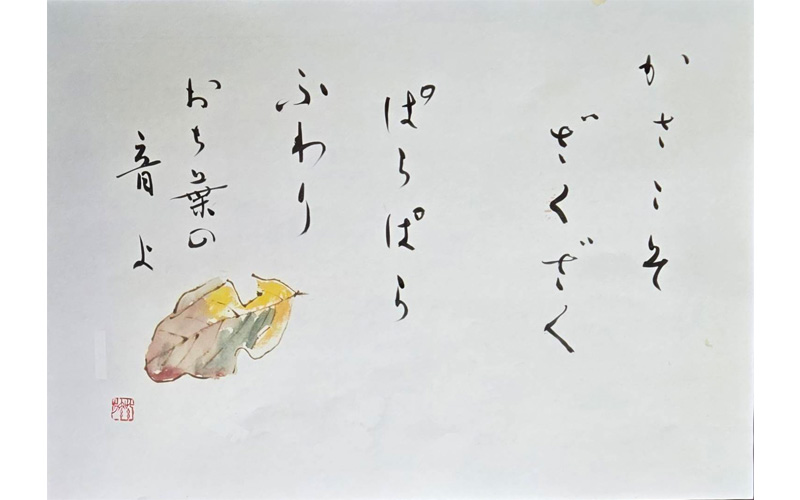 かさこそ
ざくざく
ぱらぱら
ふわり
おち葉の
音よ